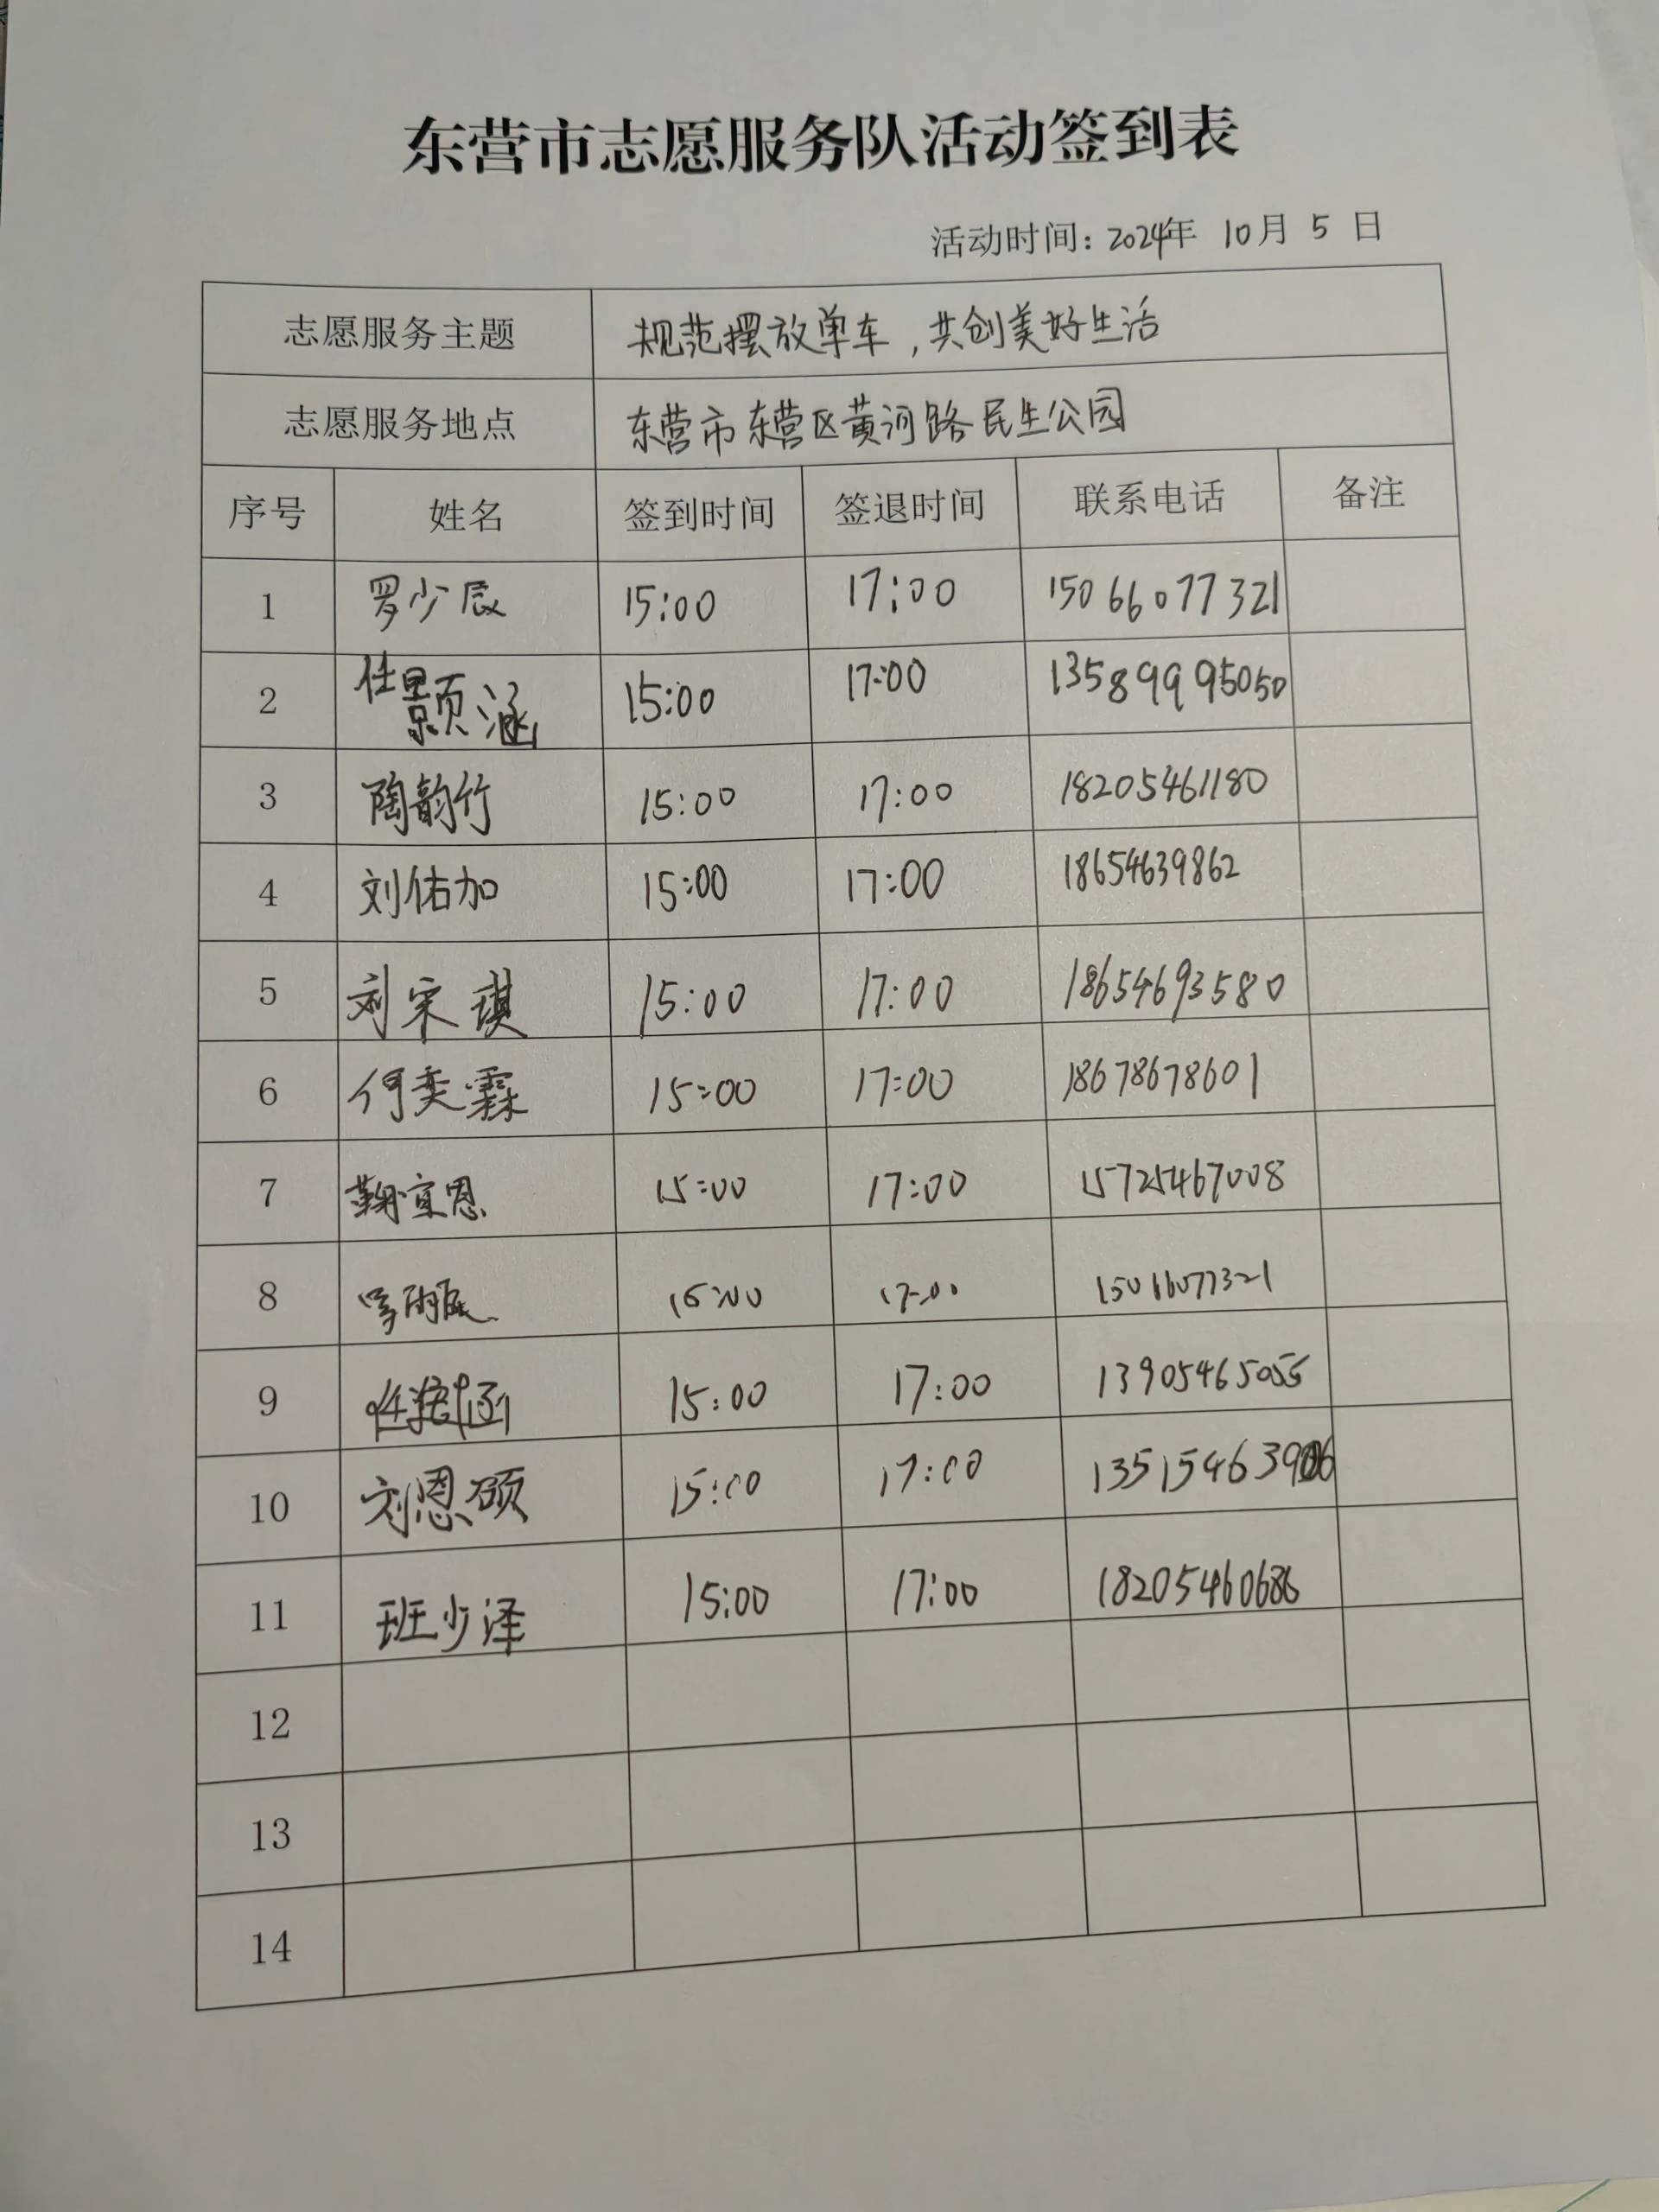 东营市志愿服务队活动签到表
活动时间：2024年 10月 5 日
志愿服务主题 规范摆放单车，共创美好生活
志愿服务地点 东营市东营区黄河路民生公园
序号 姓名 签到时间 签退时间 联系电话 备注
1 罗少辰 15:00 17:00 15066077321
2 任颢涵 15:00 17:00 13589995050
3 陶韵竹 15:00 17:00 18205461180
4 刘佑加 15:00 17:00 18654639862
5 刘宋琪 15:00 17:00 18654693580
6 何奕霖 15:00 17:00 18678678601
7 鞠宜恩 15:00 17:00 15725467008
8 15:00 17:00 15066077321
9 15:00 17:00 13905465055
10 刘恩硕 15:00 17:00
11 班少泽 15:00 17:00 18205460686
12
13
14